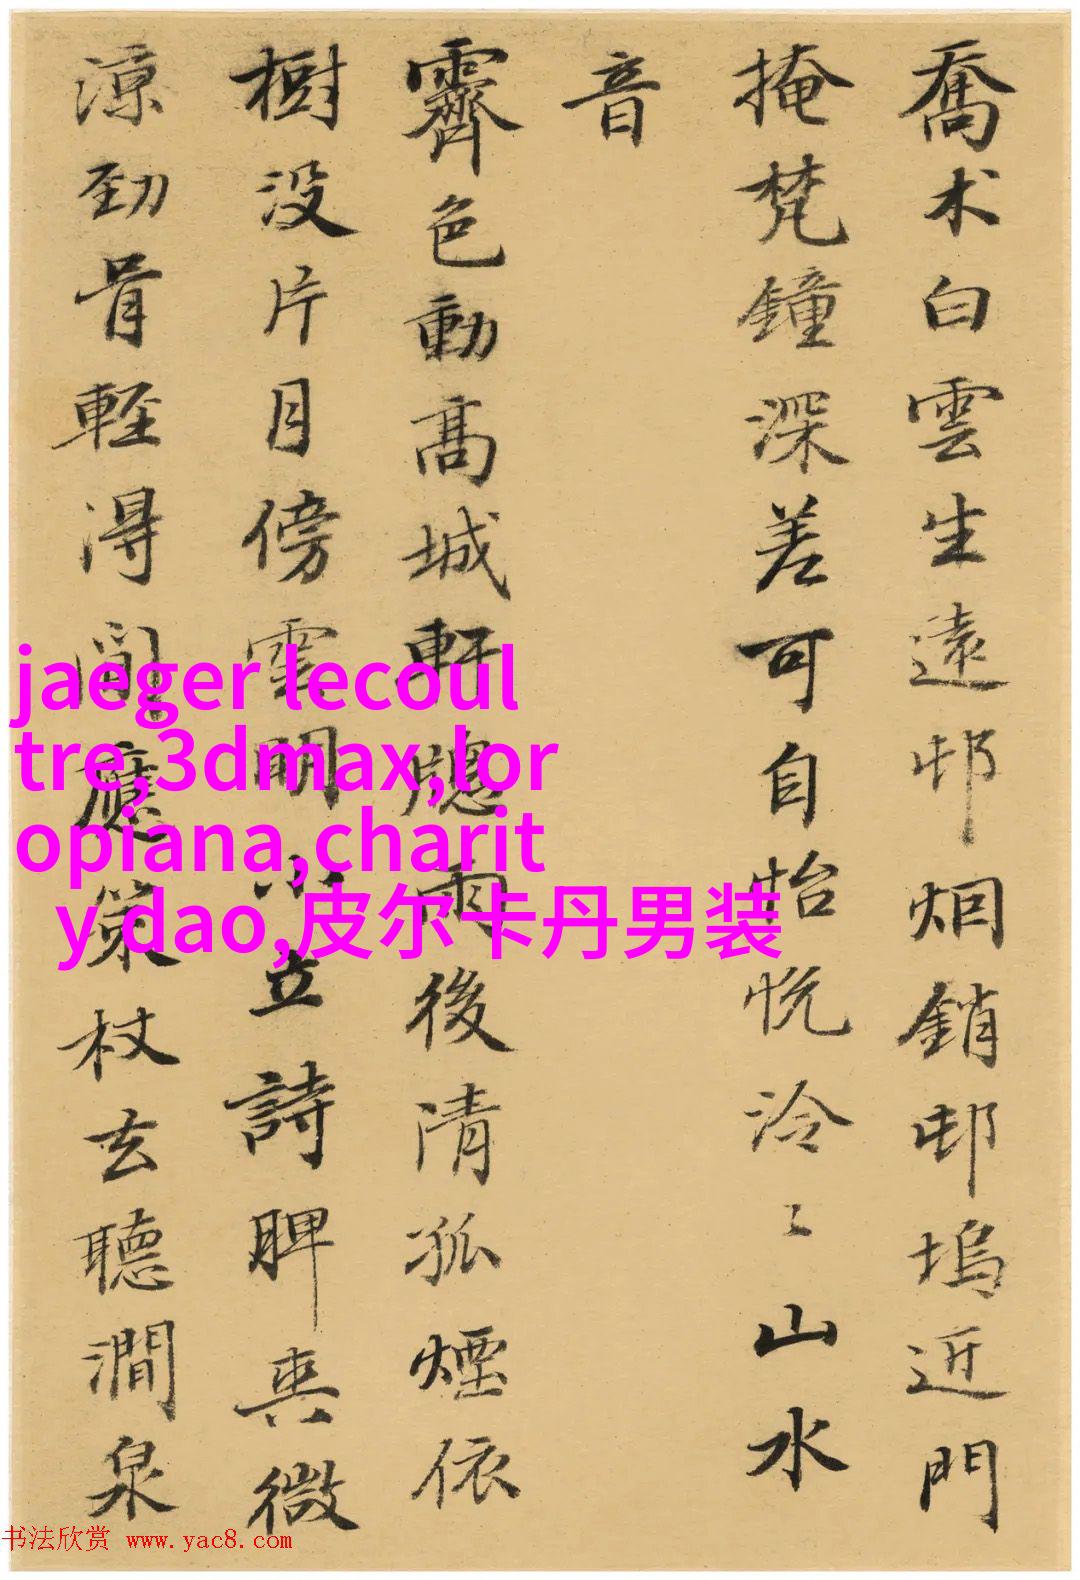 喬木白雲生遠邨烟銷邨塢近門
掩梵鐘深差可自怡悦泠〻山水
音
霽色動高城軒牕雨後清孤煙依
樹没片月傍雲明小立詩脾爽微
涼勁骨輕得閒應策杖去聽澗泉
jaeger lecoul
tre,3dmax,lor
opiana,charit
y dao,皮尔卡丹男装
书法欣赏 www.yac8.com